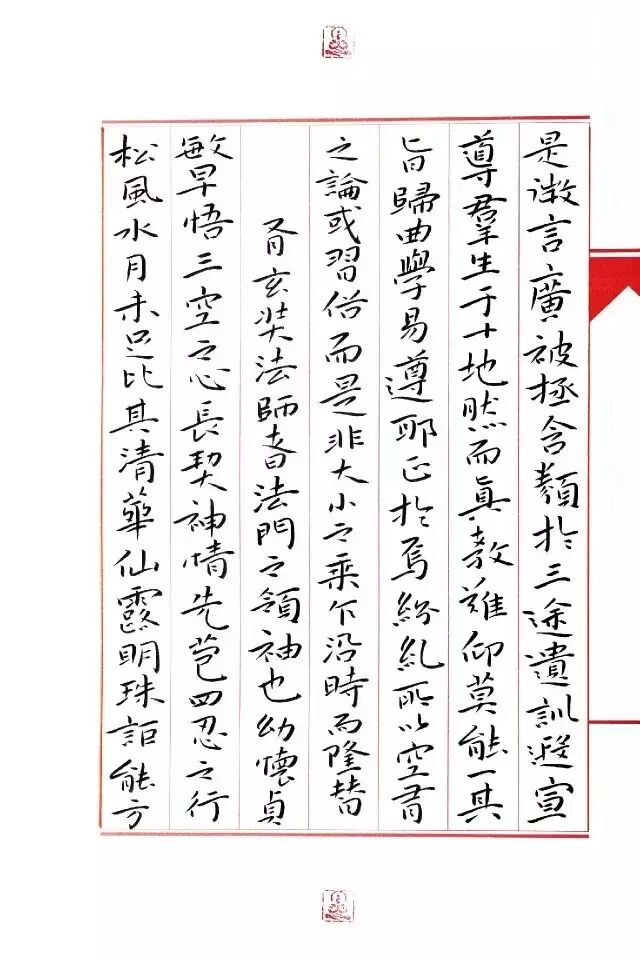 是微言廣被拯含類於三途遺訓遐宣
導羣生于十地然而真教難仰莫能一其
旨歸曲學易遵耶正於焉紛糺所以空有
之論或習俗而是非大小之乘乍沿時而隆替
有玄奘法師者法門之領袖也幼懷貞
敏早悟三空之心長契神情先苞四忍之行
松風水月未足比其清華仙露明珠詎能方